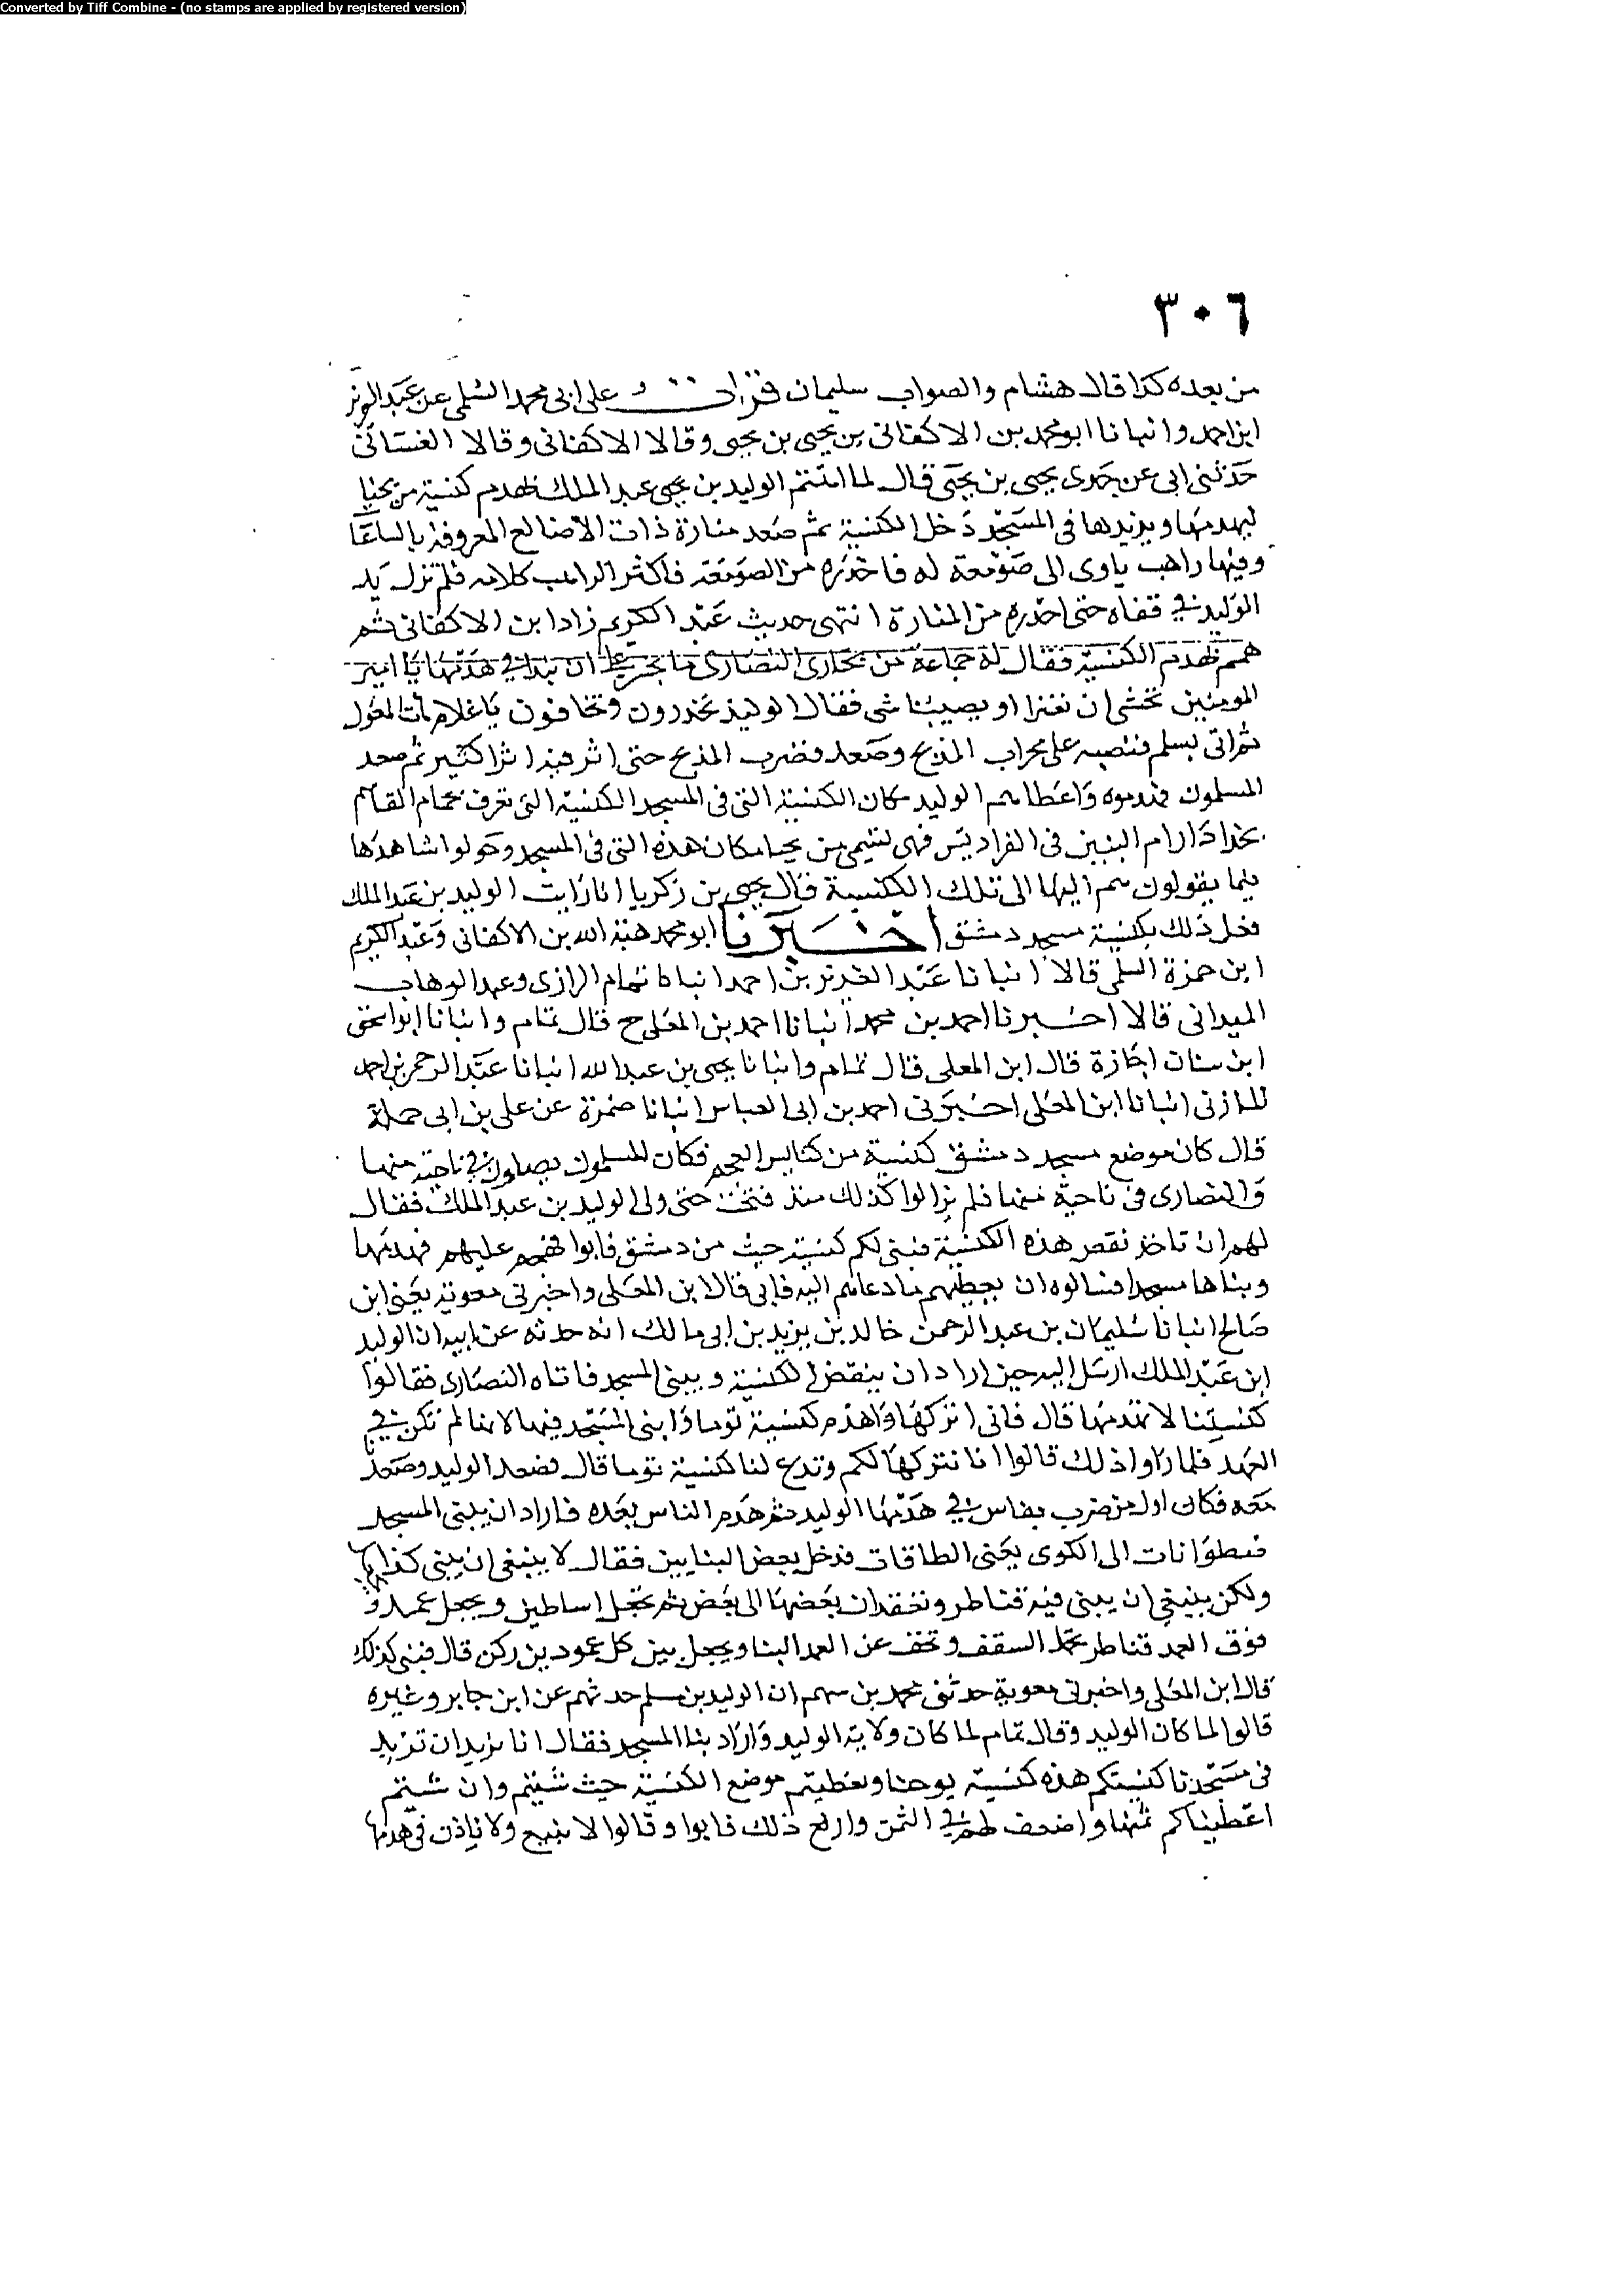 Converted by Tiff Combine - (no stamps are applied by registered version)
٣٠٦
من بعده كذا قال هشام والصواب سليمان قرات على ابى محمد السلمى عن عبد العزيز
ابن احمد وانبانا ابو محمد بن الاكفانى بن يحيى بن يحيى وقالا الاكفانى وقالا الغسانى
حدثنى ابى عن جدى يحيى بن يحيى قال لما اهتم الوليد بن عبد الملك بهدم كنيسة مريحنا
ليهدمها ويزيدها فى المسجد دخل الكنيسة ثم صعد منارة ذات الاضالع المعروفة بالساعا
وفيها راهب ياوى الى صومعة له فاحدره من الصومعة فاكثر الراهب كلامه فلم تزل يد
الوليد فى قفاه حتى احدره من المنارة انتهى حديث عبد الكريم زاد ابن الاكفانى ثم
هم بهدم الكنيسة فقال له جماعة من نجارى النصارى ما نجسر على ان نبدا فى هدمها يا امير
المومنين نخشى ان نعثر او يصيبنا شى فقال الوليد تحذرون وتخافون يا غلام هات المعول
ثم اتى بسلم فنصبه على محراب المذبح وصعد فضرب المذبح حتى اثر فيه اثرا كثير ثم صعد
المسلمون فهدموه واعطاهم الوليد مكان الكنيسة التى فى المسجد الكنيسة التى تعرف بحمام القاسم
بحذا دار ام البنين فى الفراديس فهى تسمى مريحنا مكان هذه التى فى المسجد وحولوا شاهدها
فيما يقولون هم اليها الى تلك الكنيسة قال يحيى بن زكريا انا رايت الوليد بن عبد الملك
فعل ذلك بكنيسة مسجد دمشق اخبرنا ابو محمد هبة الله بن الاكفانى وعبد الكريم
ابن حمزة السلمى قالا انبانا عبد العزيز بن احمد انبانا تمام الرازى وعبد الوهاب
الميدانى قالا اخبرنا احمد بن محمد انبانا احمد بن المعلى ح قال تمام وانبانا ابو اسحق
ابن سنان اجازة قال ابن المعلى قال تمام وانبانا يحيى بن عبد الله انبانا عبد الرحمن بن احمد
المازنى انبانا ابن المعلى اخبرنى احمد بن ابى العباس انبانا ضمرة عن على بن ابى حملة
قال كان موضع مسجد دمشق كنيسة من كنايس العجم فكان المسلمون يصلون فى ناحية منها
والنصارى فى ناحية منها فلم يزالوا كذلك منذ فتحت حتى ولى الوليد بن عبد الملك فقال
لهم ان ناخذ نقض هذه الكنيسة فنبنى لكم كنيسة حيث من دمشق فابوا فهجم عليهم فهدمها
وبناها مسجدا فسالوه ان يعطيهم ما دعاهم اليه فابى قالا ابن المعلى واخبرنى معوية يعنى ابن
صالح انبانا سليمان بن عبد الرحمن خالد بن يزيد بن ابى مالك انه حدثه عن ابيه ان الوليد
ابن عبد الملك ارسل اليه حين اراد ان ينقض الكنيسة ويبنى المسجد فاتاه النصارى فقالوا
كنيستنا لا تهدمها قال فانى اتركها واهدم كنيسة توما وابنى المسجد فيها لانها لم تكن فى
العهد فلما راوا ذلك قالوا انا نتركها لكم وتدع لنا كنيسة توما قال فصعد الوليد وصعد
معه فكان اول من ضرب بفاس فى هدمها الوليد ثم هدم الناس بعده فاراد ان يبنى المسجد
اسطوانات الى الكوى يعنى الطاقات فدخل بعض البنايين فقال لا ينبغى ان يبنى كذا
ولكن ينبغى ان يبنى فيه قناطر وتعقد ان بعضها الى بعض ثم تجعل اساطين ويجعل عمد و
فوق العمد قناطر تحمل السقف وتخف عن العمد البنا ويجعل بين كل عمودين ركن قال فبنى كذلك
قال ابن المعلى واخبرنى معوية حدثنى محمد بن سهم ان الوليد بن مسلم حدثهم عن ابن جابر وغيره
قالوا لما كان الوليد وقال تمام لما كان ولاية الوليد واراد بنا المسجد فقال انا نريد ان نزيد
فى مسجدنا كنيستكم هذه كنيسة يوحنا ونعطيتم موضع الكنيسة حيث شيتم وان شيتم
اعطيناكم ثمنها واضعف لهم فى الثمن واربع ذلك فابوا وقالوا لا نبيع ولا ناذن فى هدمها